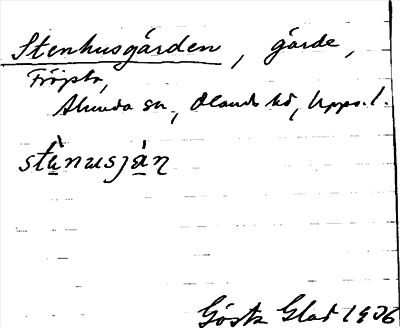 Stenhusgården, gärde,
Fröpta,
Alunda sn, Olands hd, Upps. l.
stὲnusjὰn
Gösta Glad 1936